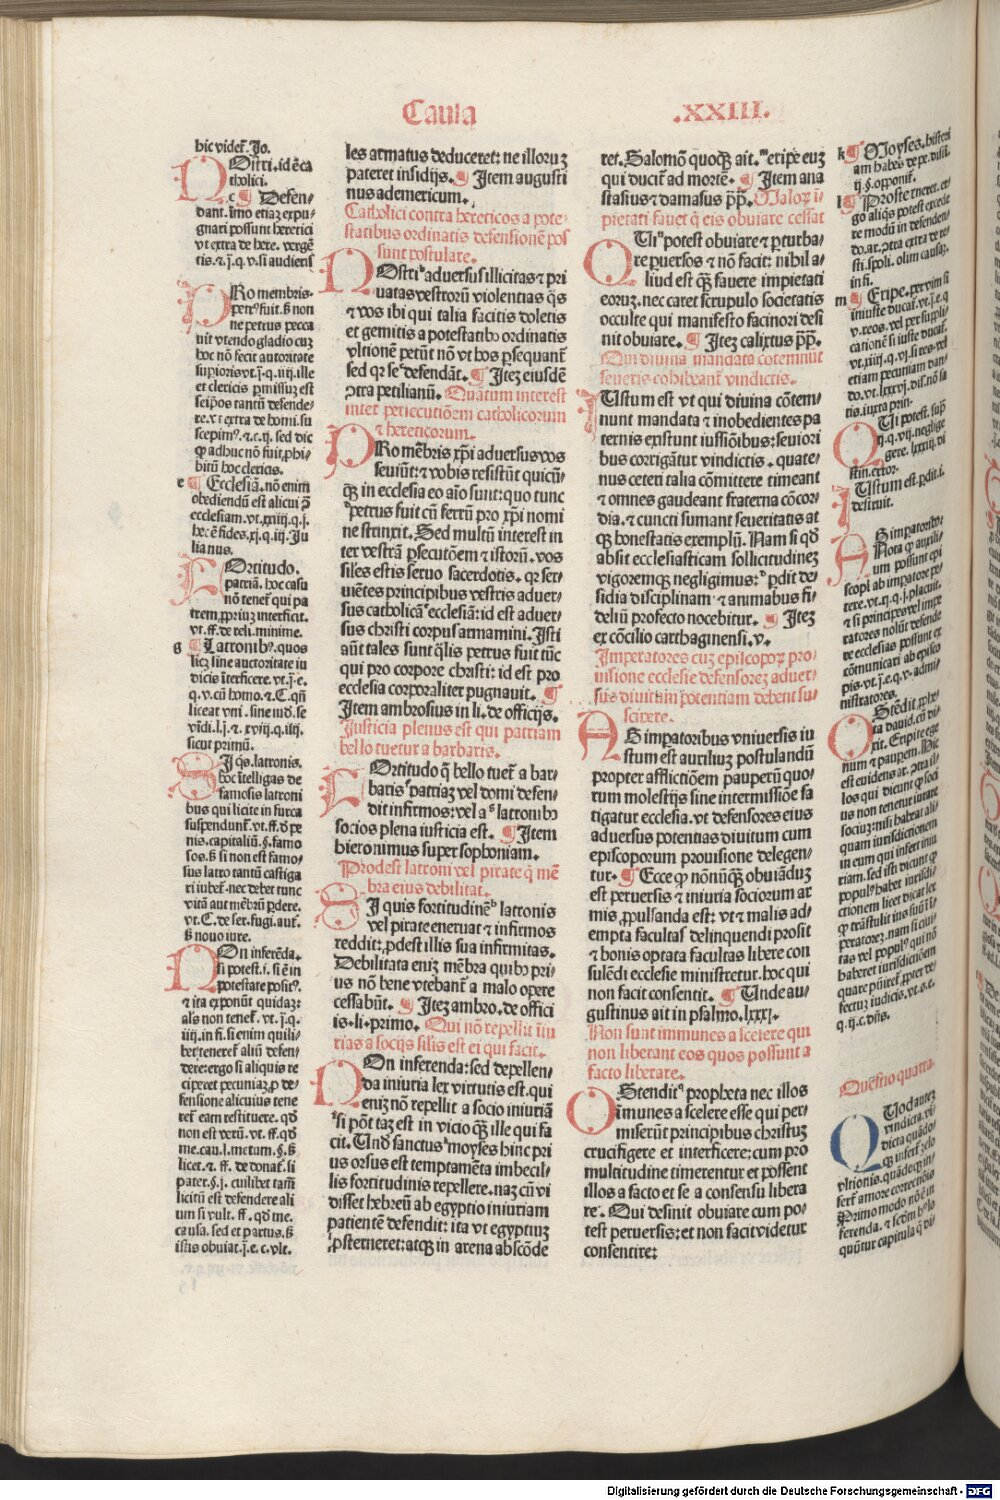 Causa
.XXIII.
hic videt. Jo.
Ostri.id ē ca
tholici.
c ¶ Defen-
dant. īmo etiaz expu-
gnari possunt heretici
vt extra de here. vergē
tis.⁊.j̄.q.v.si audieris
Ro membris.
petrꝰ fuit. s̄ non
ne petrus pecca
uit vtendo gladio cuz
hoc nō fecit auctoritate
supioris vt.j̄.q.iiij.ille
et clericis ꝑmissuz est
seip̄os tantū defende-
re.vt extra de homi. su
scepimꝰ.⁊.c.ij. sed dic
ꝙ adhuc nō fuit ꝓhi-
bitū hoc clericis.
e ¶ Ecclesiā. nō enim
obediendū est alicui ꝯ̄
ecclesiam. vt.xxiiij.q.j.
hec ē fides.xj.q.iij. Ju
lianus.
Ortitudo.
patriā. hoc casu
nō tenet qui pa
trem ꝓprium interficit.
vt.ff. de reli. minime.
g ¶ Latronibꝰ. quos
licz sine auctoritate iu
dicis īterficere. vt.j̄.e.
q.v. cū homo.⁊.C. qn̄
liceat vni. sine iud. se
vīdi. l.j.⁊. xviij.q.iiij.
sicut primū.
J qs̄. latronis.
hoc ītelligas de
famosis latroni
bus qui licite in furca
suspendunt. vt.ff. de pe
nis. capitaliū.§. famo
sos. s̄ si non est famo-
sus latro tantū castiga
ri iubet. nec debet tunc
vitā aut mēbrū ꝑdere.
vt.C. de ser. fugi. aut.
s̄ nouo iure.
On inferēda.
si potest.i. si ē in
potestate positꝰ.
⁊ ita exponūt quidaz:
als̄ non tenet. vt.j̄.q.
iiij. in fi. si enim quili-
bet teneret aliū defen-
dere: ergo si aliquis re
ciperet pecuniaz ꝓ de-
fensione alicuius tene
ret eam restituere. qd̄
non est verū. vt.ff. qd̄
me. cau. l. metum.§. s̄
licet.⁊.ff. de donat. si
pater.§.j. cuilibet tam̄
licitū est defendere ali
um si vult.ff. qd̄ me.
causa. sed et partus. s̄
istis obuiat.j̄.e.c.vlt.
les armatus deduceret: ne illoruz
pateret insidijs. ¶ Item augusti
nus ad emericum.
Catholici contra hereticos a pote-
statibus ordinatis defensionē pos
sunt postulare.
Ostri aduersus illicitas ⁊ pri
uatas vestrorū violentias q̄s
⁊ vos ibi qui talia facitis doletis
et gemitis a potestatibꝰ ordinatis
vltionē petūt nō vt hos ꝑsequant
sed qꝛ se defendāt. ¶ Itez eiusdē
ꝯtra petilianū. Quātum interest
inter persecutiōem catholicorum
⁊ hereticorum.
Ro mēbris xp̄i aduersus vos
seuiūt: ⁊ vobis resistūt quicū-
qꝫ in ecclesia eo aīo sunt: quo tunc
petrus fuit cū ferrū pro xp̄i nomi
ne strinxit. Sed multū interest in
ter vestrā ꝑsecutōem ⁊ istorū. vos
siles estis seruo sacerdotis. qꝛ ser-
uiētes principibus vestris aduer-
sus catholicā ecclesiā: id est aduer-
sus christi corpus armamini. Isti
aūt tales sunt q̄lis petrus fuit tūc
qui pro corpore christi: id est pro
ecclesia corporaliter pugnauit. ¶
Item ambrosius in li. de officijs.
Justicia plenus est qui patriam
bello tuetur a barbaris.
Ortitudo q̄ bello tuet a bar-
baris patriaz vel domi defen-
dit infirmos: vel a latronibꝰ
socios plena iusticia est. ¶ Item
hieronimus super sophoniam.
Prodest latroni vel pirate q̄ mē
bra eius debilitat.
J quis fortitudinē latronis
vel pirate eneruat ⁊ infirmos
reddit: ꝓdest illis sua infirmitas.
Debilitata eniz mēbra quibꝰ pri-
us nō bene vtebant a malo opere
cessabūt. ¶ Itez ambro. de offici
is. li. primo. Qui nō repellit iniu
rias a socijs silis est ei qui facit.
On inferenda: sed depellen-
da iniuria lex virtutis est. qui
eniz nō repellit a socio iniuriā
si pōt taz est in vicio qꝫ ille qui fa
cit. Un̄ sanctus moyses hinc pri
us orsus est temptamēta imbecil-
lis fortitudinis repellere. naz cū vi
disset hebreū ab egyptio iniuriam
patientē defendit: ita vt egyptiuz
ꝓsterneret: atqꝫ in arena abscōde
ret. Salomō quoqꝫ ait. eripe euz
qui ducit ad mortē. ¶ Item ana
stasius ⁊ damasus pp̄. Maloꝝ ī-
pietati fauet q̄ eis obuiare cessat
Ui potest obuiare ⁊ ꝑturba-
re ꝑuersos ⁊ nō facit: nihil a-
liud est qꝫ fauere impietati
eoruz. nec caret scrupulo societatis
occulte qui manifesto facinori desi
nit obuiare. ¶ Itez calixtus pp̄.
Qui diuina mandata cōtemnūt
seueris cohibeant vindictis.
Ustum est vt qui diuina cōtem-
nunt mandata ⁊ inobedientes pa
ternis existunt iussiōibus: seuiori
bus corrigātur vindictis. quate-
nus ceteri talia cōmittere timeant
⁊ omnes gaudeant fraterna cōcor-
dia. ⁊ cuncti sumant seueritatis at
qꝫ honestatis exemplū. Nam si qd̄
absit ecclesiasticam sollicitudinez
vigoremqꝫ negligimus: ꝑdit de-
sidia disciplinam ⁊ animabus fi-
deliū profecto nocebitur. ¶ Itez
ex cōcilio carthaginensi. v.
Imperatores cuz episcopoꝝ pro-
uisione ecclesie defensorez aduer-
sus diuitum potentiam debent su-
scipere.
B imꝑatoribus vniuersis iu
stum est auriliuz postulandū
propter afflictiōem pauperū quo-
rum molestijs sine intermissiōe fa
tigatur ecclesia. vt defensores eius
aduersus potentias diuitum cum
episcoporum prouisione delegen-
tur. ¶ Ecce ꝙ nōnūqꝫ obuiāduz
est peruersis ⁊ iniuria sociorum ar
mis ꝓpulsanda est: vt ⁊ malis ad-
empta facultas delinquendi prosit
⁊ bonis optata facultas libere con
sulēdi ecclesie ministretur. hoc qui
non facit consentit. ¶ Unde au-
gustinus ait in psalmo. lxxxj.
Non sunt immunes a scelere qui
non liberant eos quos possunt a
facto liberare.
Stendit propheta nec illos
imunes a scelere esse qui per-
miserūt principibus christuz
crucifigere et interficere: cum pro
multitudine timerentur et possent
illos a facto et se a consensu libera
re. Qui desinit obuiare cum po-
test peruersis: et non facit videtur
consentire:
k ¶ Moyses. histori
am habes de pe. dist.
ij. §. opponit.
l ¶ Prosterneret. er-
go aliqs̄ potest excede
re modū in defenden-
do. ar. ꝯtra extra de re-
sti. spoli. olim causaz.
in fi.
m ¶ Eripe. per vim si
iniuste ducat. vt.j̄.e.q
v. reos. vel per suppli-
cationē si iuste ducat.
vt.xiiij.q.vj. si res. vel
etiam pecuniam dan-
do. vt.lxxxvj. dis. nō sa
tis. iuxta prin.
Ui potest. sup̄
ij.q.vij. neglige
gere.lxxxiij. vi
stin. error.
Ustum est. ꝑdit.i.
destruit.
B imperatoribꝰ
Nota ꝙ auxili-
um possunt epi
scopi ab imꝑatore pe-
tere. vt.xj.q.j. placuit.
⁊ si principes vel impe
ratores nolūt defende
re ecclesias possunt ex
cōmunicari ab episco
pis. vt.j̄.e.q.v. admi-
nistratores.
Stēdit. ꝓphe-
ta dauid. cū di-
xit. Eripite ege
num ⁊ pauperem. Hic
est euidens ar. ꝯtra il-
los qui dicunt ꝙ soci
us non tenetur iuuare
sociuz: nisi habeat ali-
quam iurisdictionem
in eum qui infert iniu
riam. sed isti dicunt ꝙ
populꝰ habet iurisdi-
ctionem licet dicat lex
ꝙ trāstulit ius suū ī im
peratorez: nam si ciui-
tas vel populꝰ qui nō
haberet iurisdictiōem
quare punitet ꝓpter de-
fectuz iudicis. vt.s.e.
q.ij.c. dn̄s.
Questio quarta.
Uod autez
vindicta. vi-
dicta quādo-
qꝫ infert zelo
vltionis. quādoqꝫ in-
fert amore correctiōis
Primo modo nō ē in
ferenda. ⁊ scd̄m hꝰ lo
quūtur capitula q̄ vi-
Digitalisierung gefördert durch die Deutsche Forschungsgemeinschaft - DFG